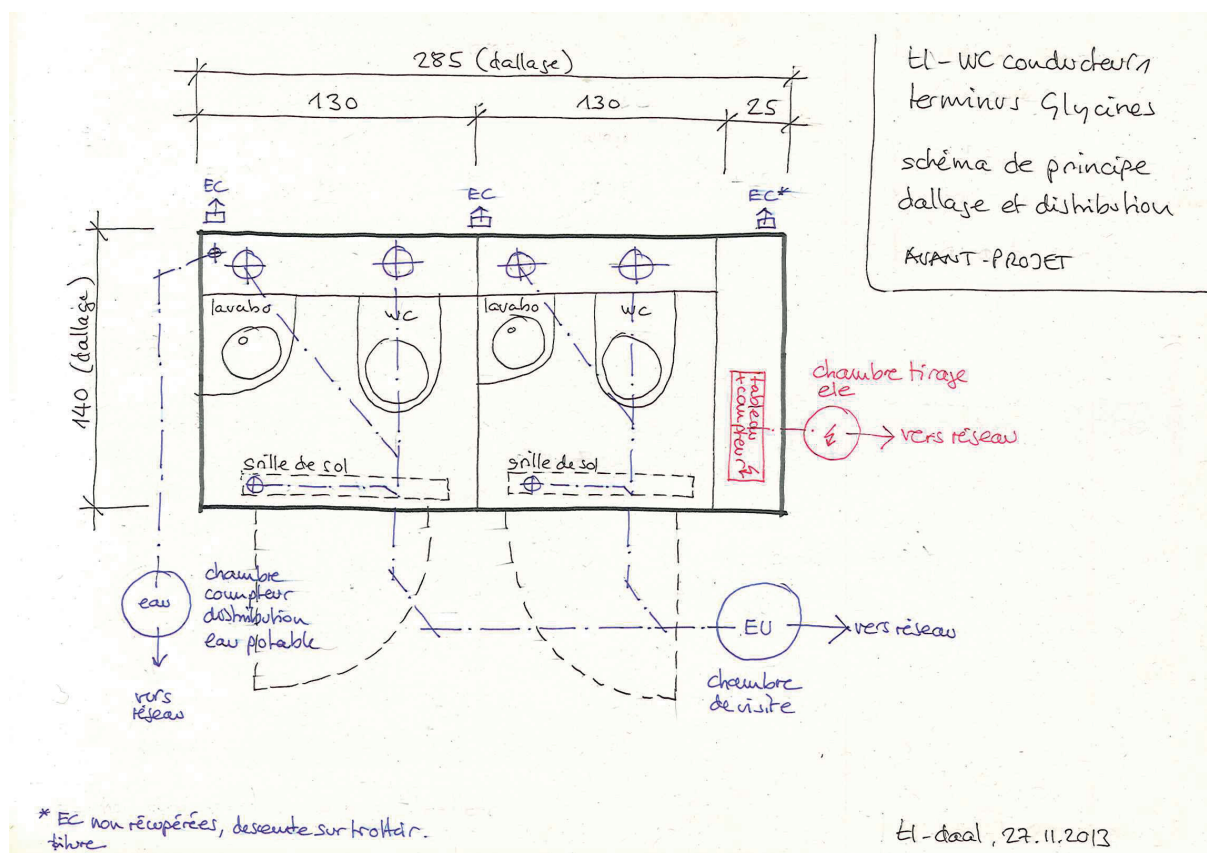 285 (dallage)
130
130
25
tl-WC conducteurs
terminus Glycines
schéma de principe
dallage et distribution
AVANT-PROJET
EC
EC
EC*
140 (dallage)
lavabo
WC
lavabo
WC
grille de sol
grille de sol
tableau
+ compteur
chambre tirage
ele
vers réseau
eau
chambre
compteur
distribution
eau potable
vers
réseau
EU
vers réseau
chambre
de visite
* EC non récupérées, descente sur trottoir.
27.11.2013